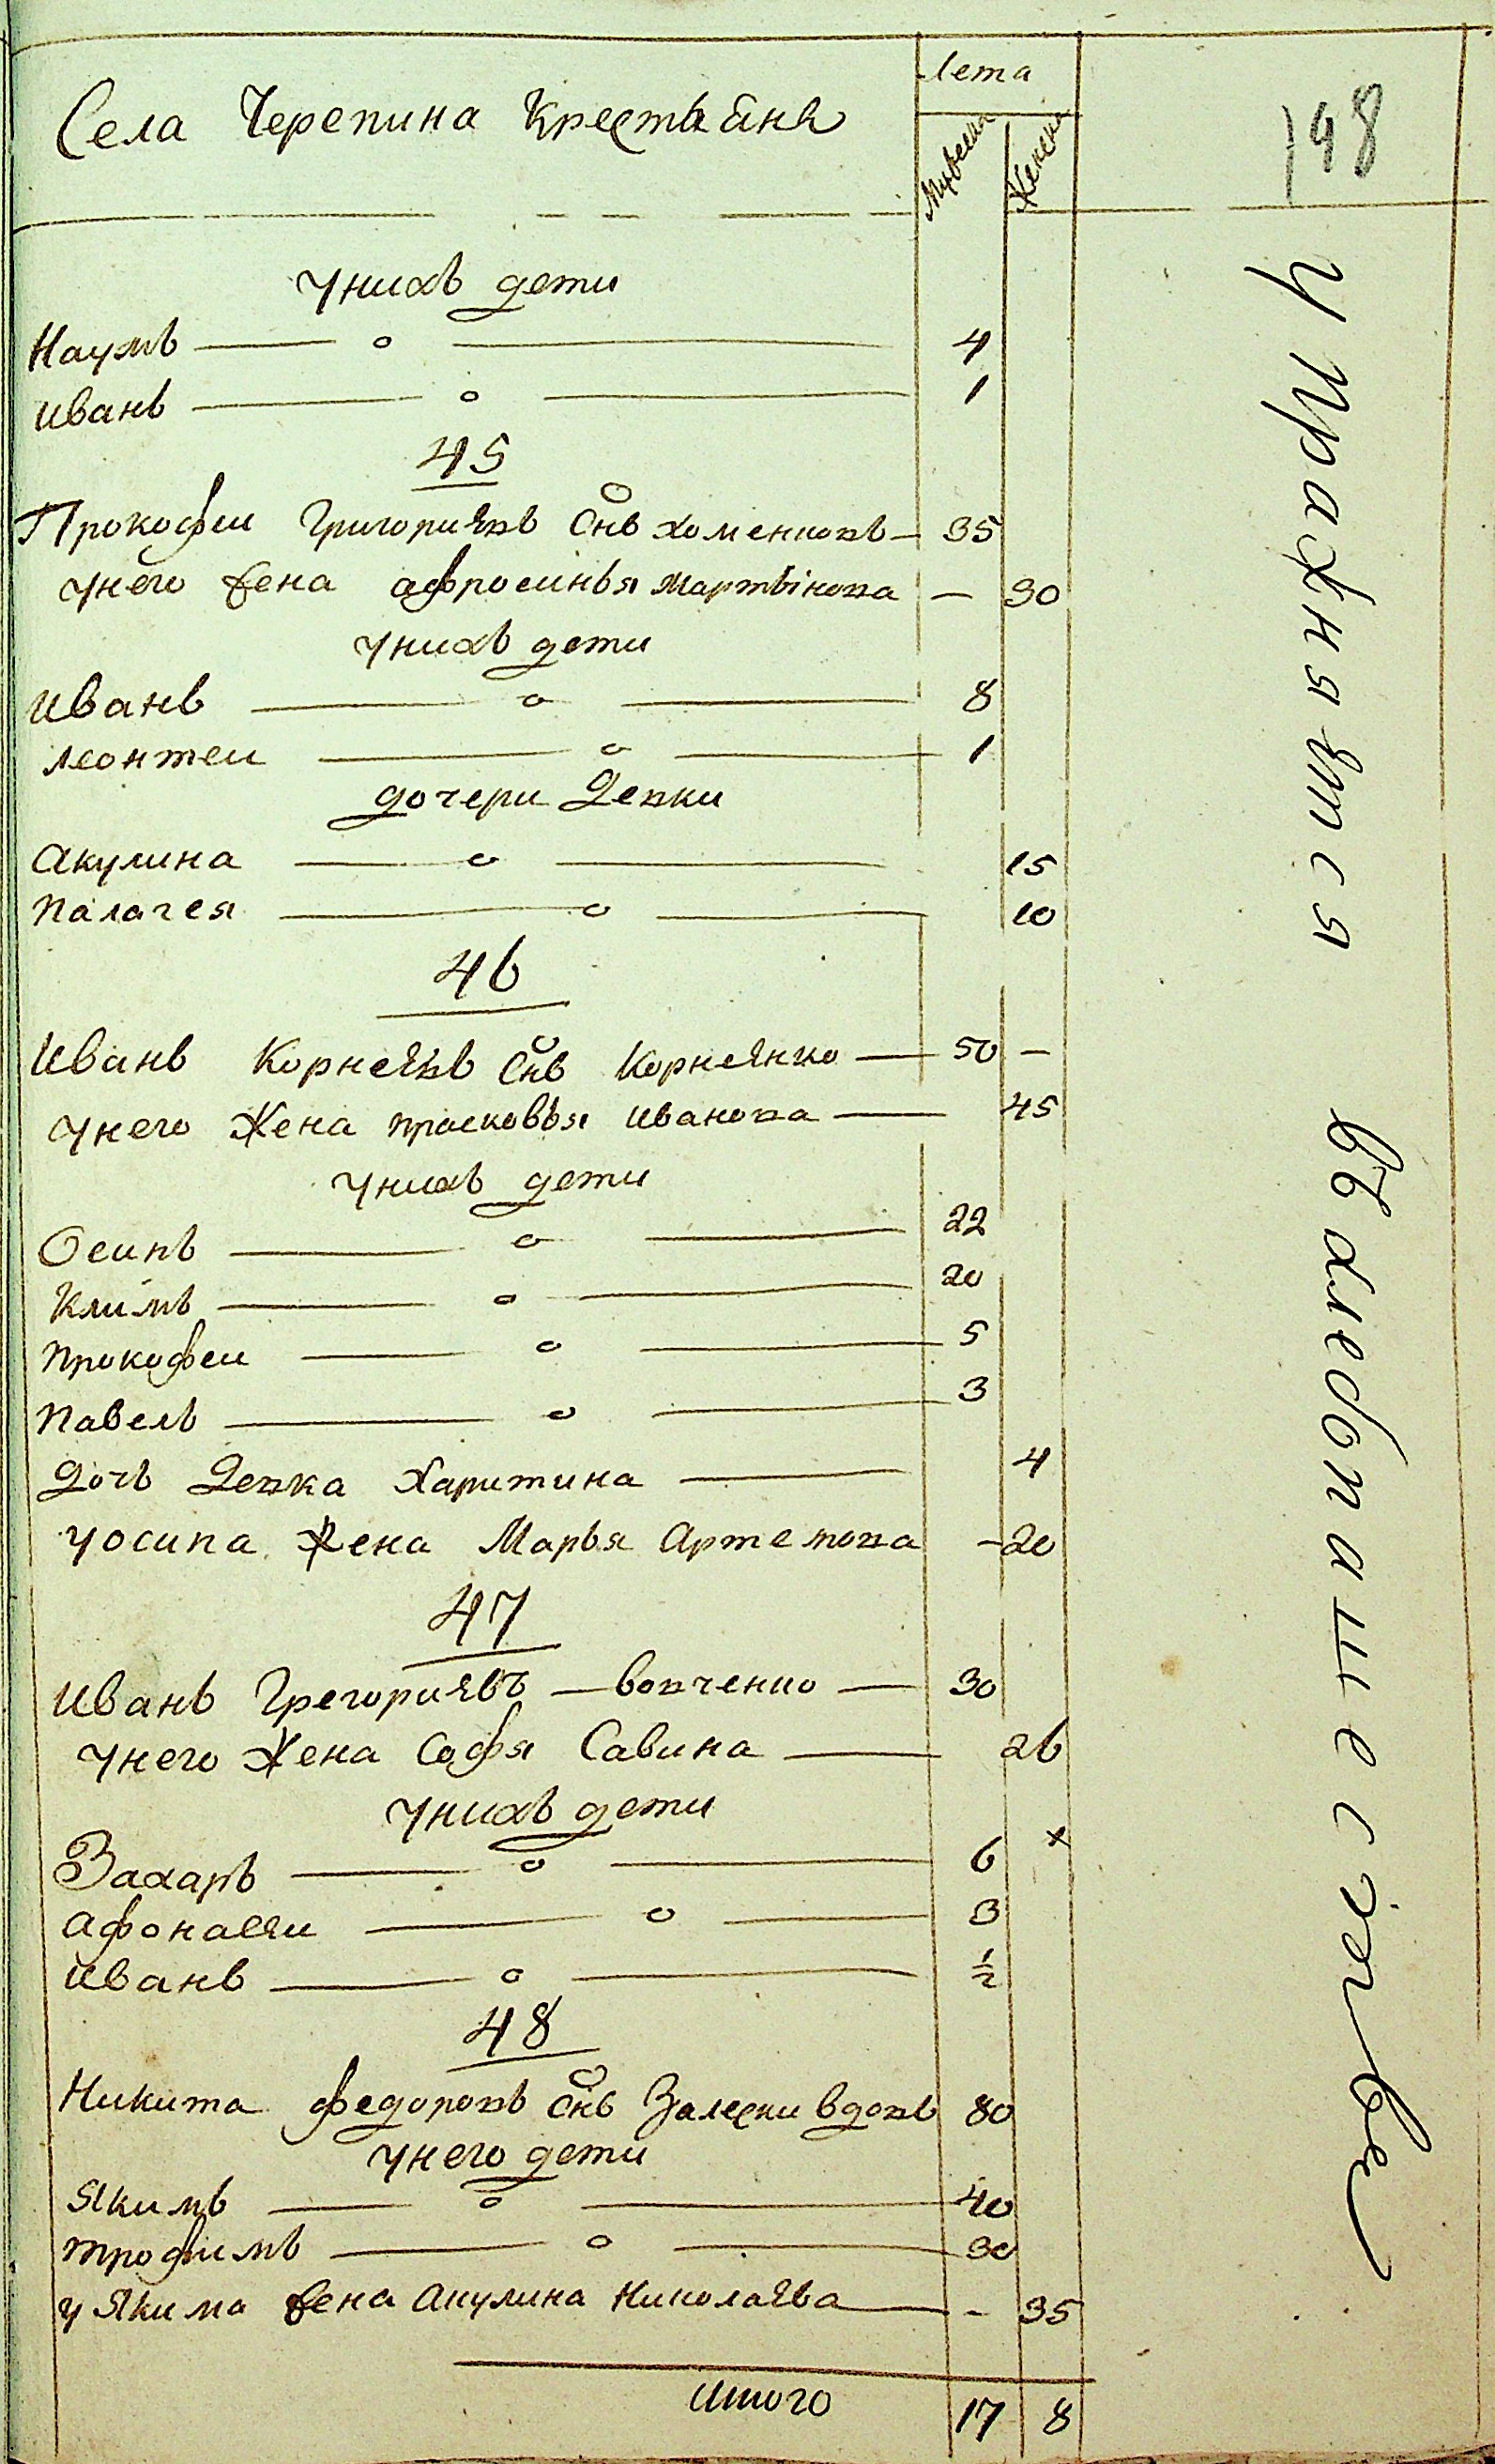 Села Черепина Крестьяне
Лета
Мужеска
Женска
198
у них дети
Наумъ — 4
Иванъ — 1
45
Прокофеи Григориевъ Снъ Хоменковъ — 35
у него жена афросинья Мартынова — 30
у нихъ дети
Иванъ — 8
Леонтеи — 1
дочери Девки
Акулина — 15
Палагея — 10
46
Иванъ Корнеевъ Снъ Корнеенко — 50 —
у него Жена прасковья Иванова — 45
у нихъ дети
Осипъ — 22
Климъ — 20
Прокофеи — 5
Павелъ — 3
Дочь Девка Харитина — 4
у осипа Жена Марья Артемова — 20
47
Иванъ Грегориевъ — Вовченко — 30
у него Жена Софя Савина — 26
у нихъ дети
Захаръ — 6
афонасеи — 3
Иванъ — ½
48
Никита федоровъ Снъ Залески вдовъ 80
у него дети
Якимъ — 40
трофимъ — 30
у Якима жена Акулина Николаева — 35
Итого 17 8
Упражняются въ хлебопашестве